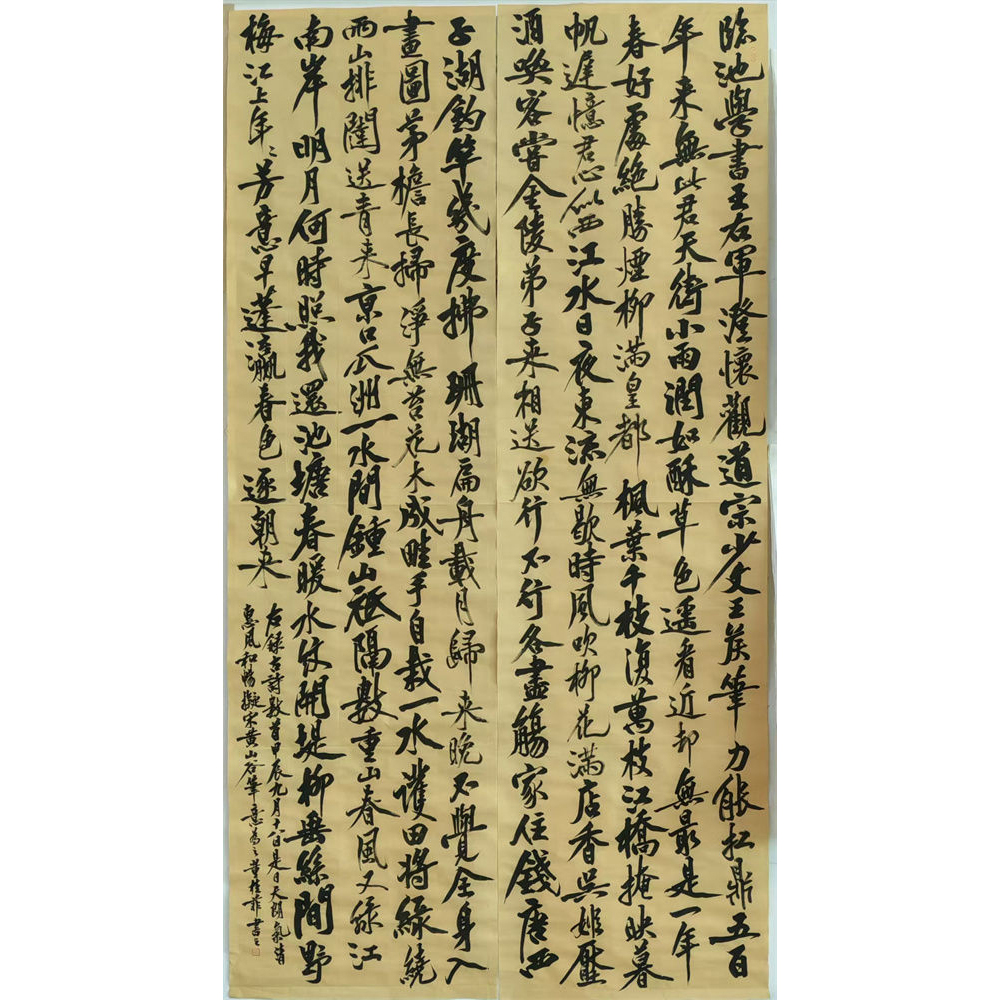 臨池學書王右軍澄懷觀道宗少文王侯筆力能扛鼎五百
年来無此君天街小雨潤如酥草色遥看近却無最是一年
春好處絶勝煙柳滿皇都楓葉千枝復萬枝江橋掩映暮
帆遲憶君心似西江水日夜東流無歇時風吹柳花滿店香吴姬壓
酒唤客嘗金陵弟子来相送欲行不行各盡觴家住錢唐西
子湖釣竿幾度拂珊瑚扁舟載月歸来晚不覺全身入
畫圖茅檐長掃淨無苔花木成畦手自栽一水護田將緑繞
兩山排闥送青来京口瓜洲一水間鍾山祗隔數重山春風又緑江
南岸明月何時照我還池塘春暖水仗開堤柳垂絲間野
梅江上年〻芳意早蓬瀛春色逐朝来
右録古詩數首甲辰九月十八日是日天朗氣清
惠風和暢擬宋黄山谷筆意為之黄桂菲書之